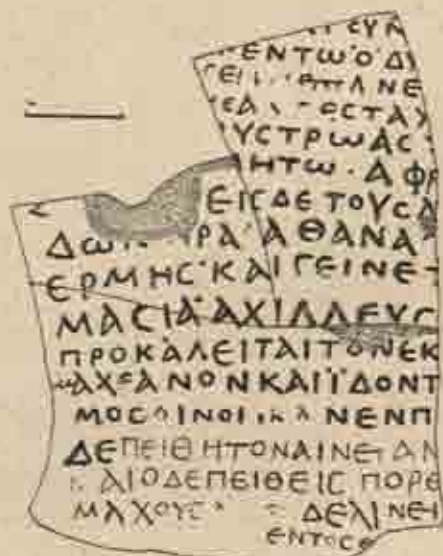 ΕΥΝ
ΕΝΤωΟΔΙ
ΓΕΙ ΠΛΝΕ
ΕΑ ΟϹΤΑΧ
ΥϹΤΡωΑϹ
ΗΤω·ΑΦΡ
ΕΙϹΔΕΤΟΥϹΑ
Δω ΡΑ ΑΘΑΝΑ
ΕΡΜΗϹ ΚΑΙΓΕΙΝΕ
ΜΑϹΙΑ ΑΧΙΛΛΕΥϹ
ΠΡΟΚΑΛΕΙΤΑΙΤΟΝΕΚ
ΜΑΧ ΑΝΟΝΚΑΙΪΔΟΝΤ
ΜΟϹ ΙΝΟΙ ΝΕΝΠ
ΔΕΠΕΙΘΗΤΟΝΑΙΝΕΙΑΝ
ΑΙΟΔΕΠΕΙΘΕΙϹ ΠΟΡΕ
ΜΑΧΟΥϹ ΔΕΑΙΝΕΙ
ΕΝΤΟϹ